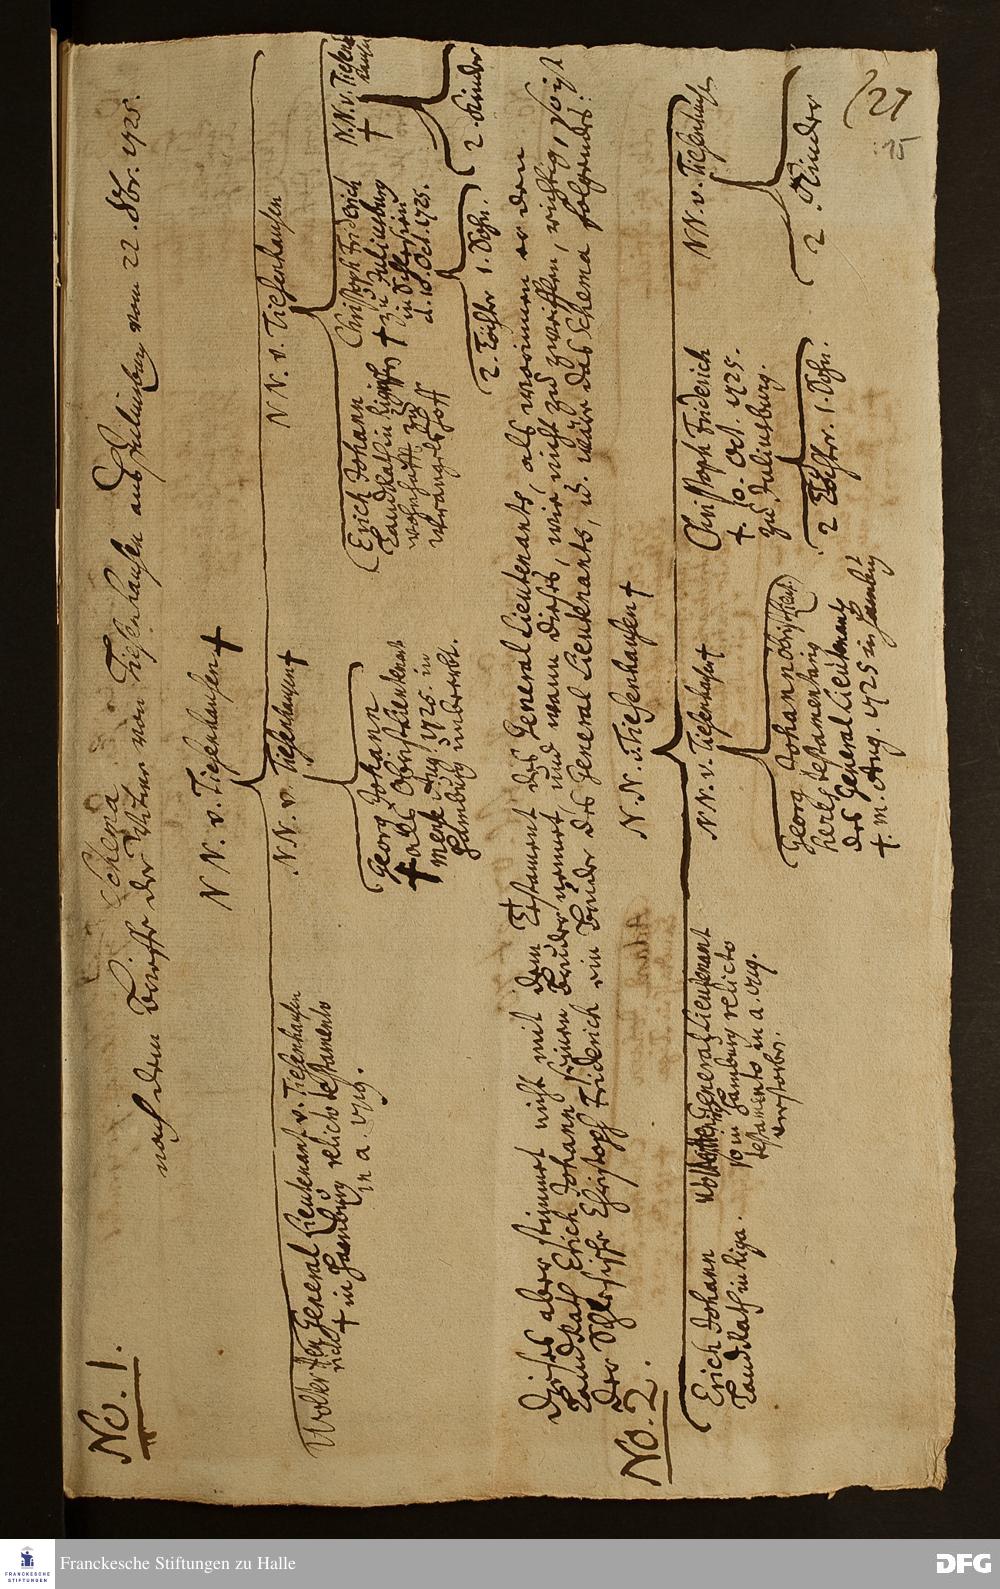 No. 1.
Schema
nach dem Brieffe der Witwe von Tiesenhausen aus Juliusburg vom 22. Nbr. 1725.
N N. v. Tiesenhausen †
Wolter General Lieutenant v. Tiesenhausen
† in Hamburg relicto testamento
in a. 1719.
N N. v. Tiesenhausen †
Georg Johann
† als Obrist Lieutenant
mense Aug. 1725. in
Hamburg unbeerbt.
N N. v. Tiesenhausen
Erich Johann
Landrath in
wohnhafft zu
Wrangelshoff
Christoph Friderich
† zu Juliusburg
in Schlesien
d. 10. Oct. 1725.
2. Töchter 1. Sohn.
N. N. v. Tiesenhausen
†
2. Kinder
Dieses aber stimmet nicht mit dem Testament des General Lieutenants, als worinnen er den
Landrath Erich Johann seinen Bruder nennet und wann dieses, wie nicht zu zweiffeln, richtig, so ist
der Schlesische Christoph Friderich ein Bruder des General Lieutenants, u. wäre das Schema folgendes:
No. 2.
N. N. v. Tiesenhausen †
Erich Johann
Landrath in Riga.
General Lieutenant
so in Hamburg relicto
testamento in a. 1719.
verstorben.
N N. v. Tiesenhausen †
Georg Johann Obrist Lieut.
heres testamentarius
des General Lieutenants
†. m. Aug. 1725 in Hamburg
Christoph Friderich
†. 10. Oct. 1725.
zu Juliusburg.
2 Töchter. 1. Sohn.
N N. v. Tiesenhausen
2. Kinder
(27
15
Franckesche Stiftungen zu Halle
FRANCKESCHE
STIFTUNGEN
DFG